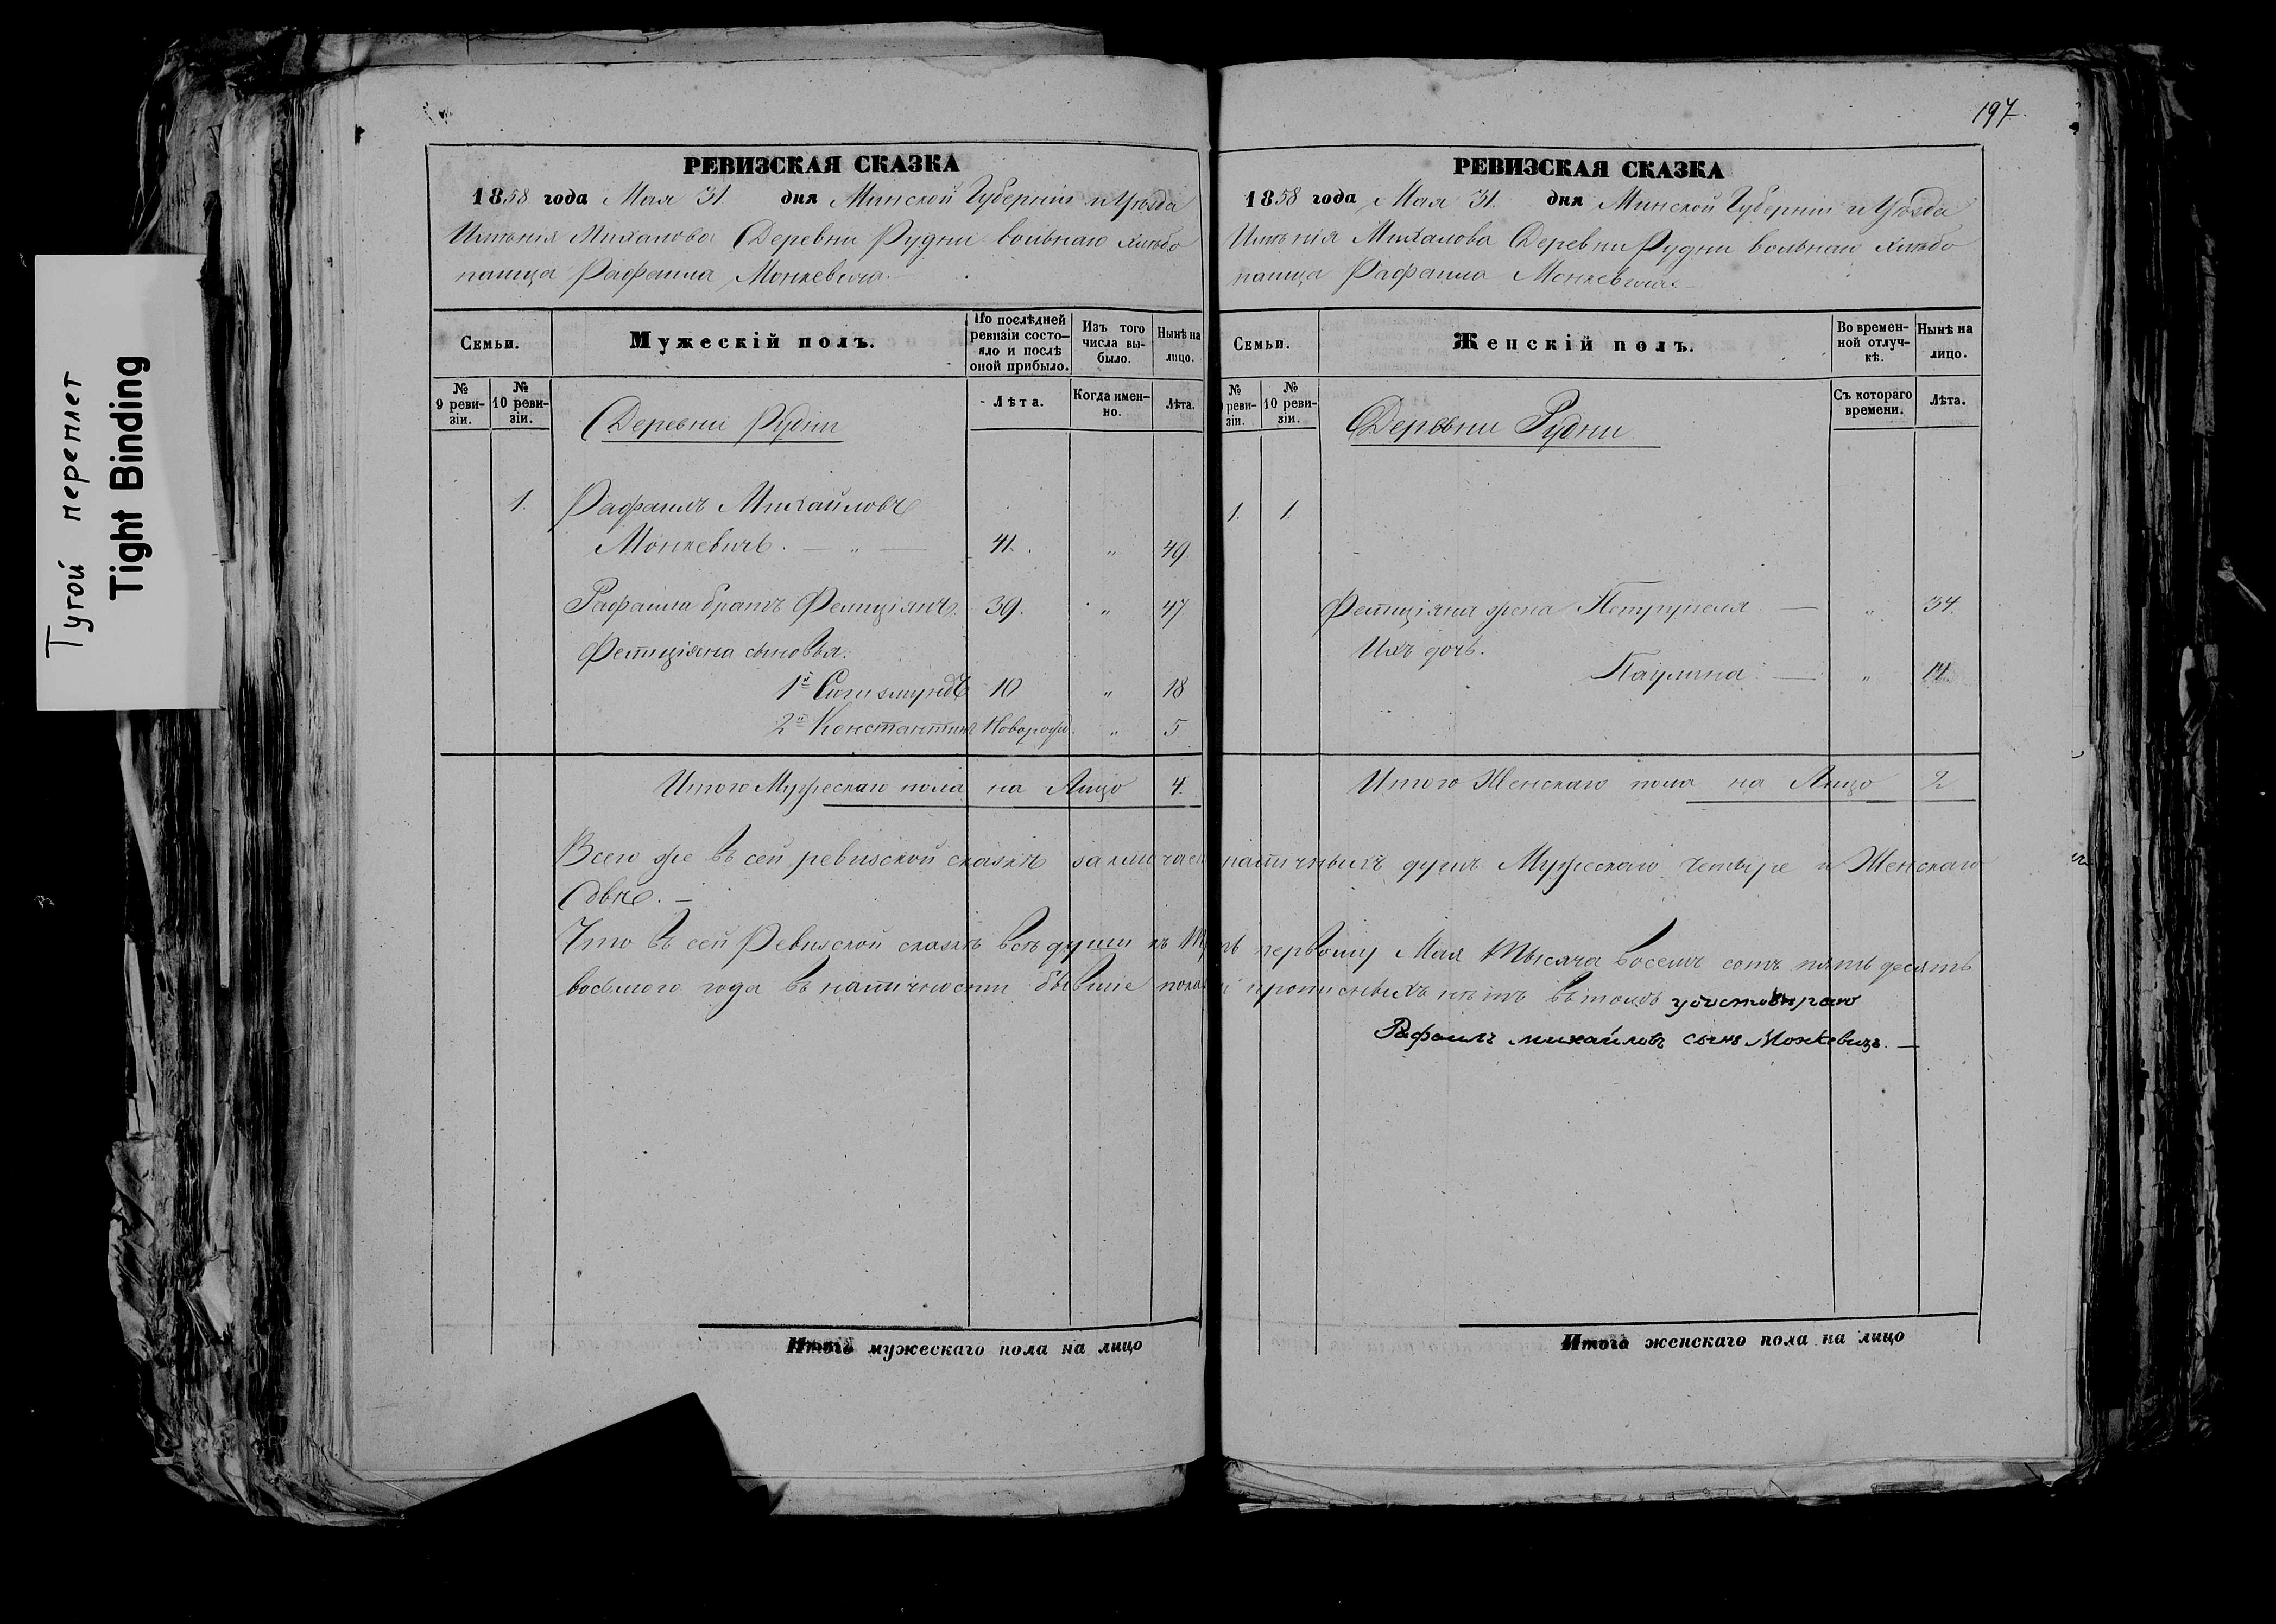 Тугой переплет
Tight Binding
РЕВИЗСКАЯ СКАЗКА
1858 года Мая 31 дня Минской Губерніи и Уѣзда
Имѣнія Михалова Деревни Рудни вольнаго хлѣбо
пашца Рафаила Монкевича.
Семьи.
Мужескій полъ.
По послѣдней ревизіи состояло и послѣ оной прибыло.
Изъ того числа выбыло.
Нынѣ на лицо.
№ 9 ревизіи.
№ 10 ревизіи.
Лѣта.
Когда именно.
Лѣта.
Деревни Рудни
1. Рафаилъ Михайловъ
Монкевичъ. — „ — 41. „ 49.
Рафаила братъ Фелиціянъ. 39. „ 47.
Фелиціяна сыновья.
1й Сигизмундъ 10 „ 18
2й Константинъ Новорожд. „ 5
Итого Мужескаго пола на Лицо 4.
Итого мужескаго пола на лицо
197.
РЕВИЗСКАЯ СКАЗКА
1858 года Мая 31. дня Минской Губерніи и Уѣзда
Имѣнія Михалова Деревни Рудни вольнаго хлѣбо
пашца Рафаила Монкевича.
Семьи.
Женскій полъ.
Во временной отлучкѣ.
Нынѣ на лицо.
№ ревизіи.
№ 10 ревизіи.
Съ котораго времени.
Лѣта.
Деревни Рудни
1. 1.
Фелиціяна жена Петрунеля — „ 34.
Ихъ дочь.
Паулина. — „ 14.
Итого Женскаго пола на Лицо 2
Всего же въ сей ревизской сказкѣ наличныхъ душъ Мужескаго четыре и Женскаго
двѣ. —
Что въ сей Ревизской сказкѣ всѣ души первому Мая тысяча восемь сотъ пять десятъ
восьмого года въ наличности бывшіе прописныхъ нѣтъ въ томъ удостовѣраю
Рафаилъ михайловъ сынъ Монкевичъ. —
Итого женскаго пола на лицо